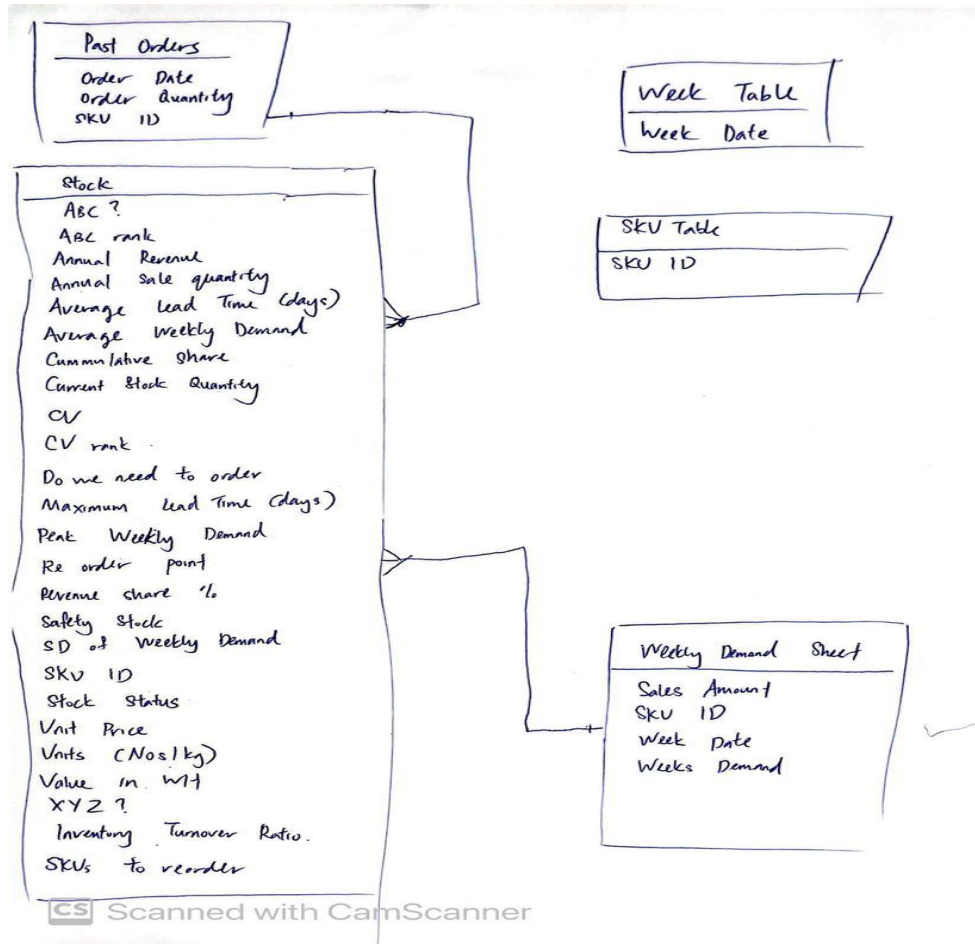 Past Orders
Order Date
Order Quantity
SKU ID
Week Table
Week Date
Stock
ABC ?
ABC rank
Annual Revenue
Annual Sale quantity
Average Lead Time (days)
Average Weekly Demand
Cummulative Share
Current Stock Quantity
CV
CV rank
Do we need to order
Maximum Lead Time (days)
Peak Weekly Demand
Re order point
Revenue share %
Safety Stock
SD of Weekly Demand
SKU ID
Stock Status
Unit Price
Units (Nos/kg)
Value in WH
XYZ ?
Inventory Turnover Ratio.
SKUs to reorder
SKU Table
SKU ID
Weekly Demand Sheet
Sales Amount
SKU ID
Week Date
Weeks Demand
CS Scanned with CamScanner